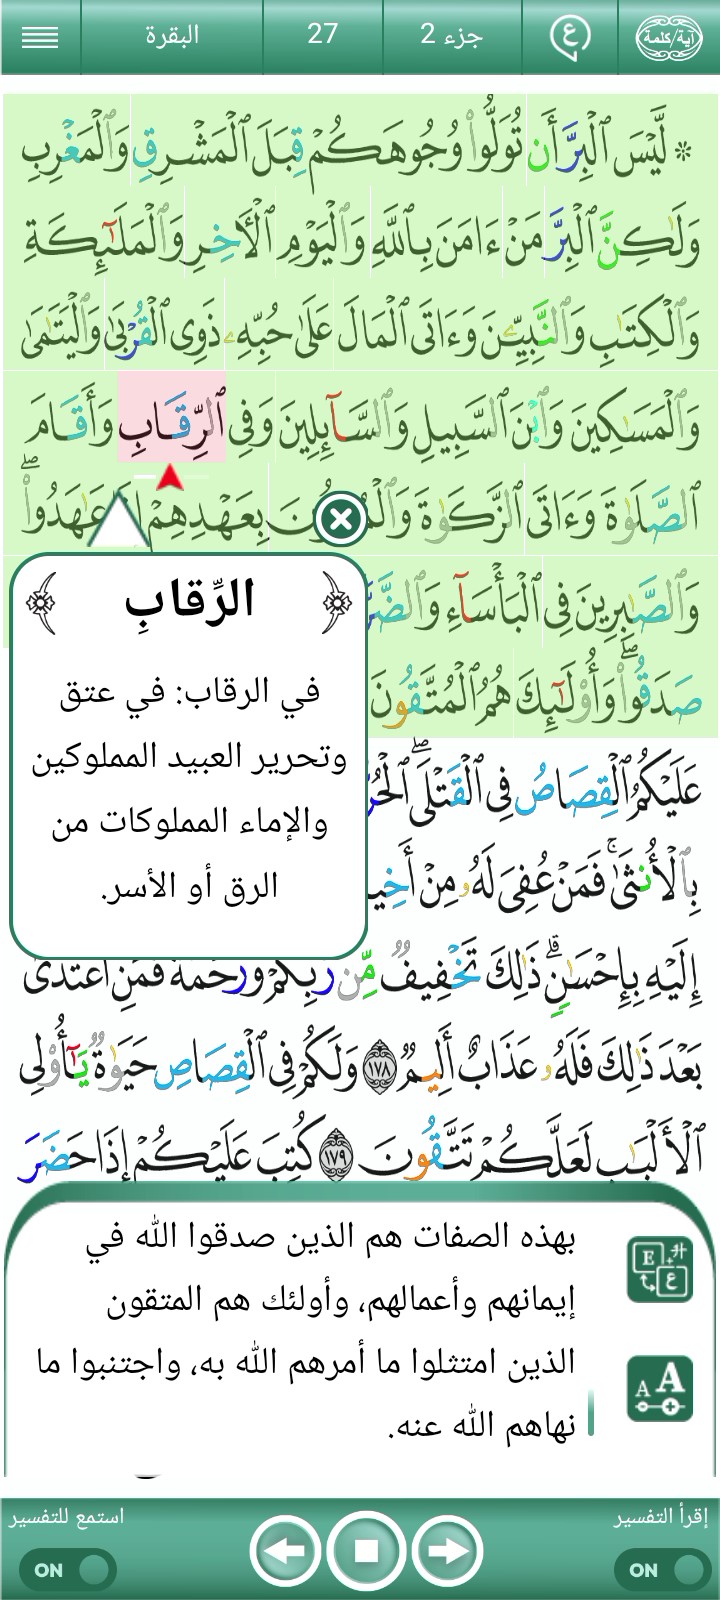 آية/كلمة
ع
جزء 2
27
البقرة
۞ لَّيْسَ ٱلْبِرَّ أَن تُوَلُّوا۟ وُجُوهَكُمْ قِبَلَ ٱلْمَشْرِقِ وَٱلْمَغْرِبِ
وَلَٰكِنَّ ٱلْبِرَّ مَنْ ءَامَنَ بِٱللَّهِ وَٱلْيَوْمِ ٱلْءَاخِرِ وَٱلْمَلَٰٓئِكَةِ
وَٱلْكِتَٰبِ وَٱلنَّبِيِّۦنَ وَءَاتَى ٱلْمَالَ عَلَىٰ حُبِّهِۦ ذَوِى ٱلْقُرْبَىٰ وَٱلْيَتَٰمَىٰ
وَٱلْمَسَٰكِينَ وَٱبْنَ ٱلسَّبِيلِ وَٱلسَّآئِلِينَ وَفِى ٱلرِّقَابِ وَأَقَامَ
ٱلصَّلَوٰةَ وَءَاتَى ٱلزَّكَوٰةَ بِعَهْدِهِمْ عَٰهَدُوا۟ۖ
وَٱلصَّٰبِرِينَ فِى ٱلْبَأْسَآءِ
صَدَقُوا۟ۖ وَأُو۟لَٰٓئِكَ هُمُ ٱلْمُتَّقُونَ
الرِّقابِ
في الرقاب: في عتق
وتحرير العبيد المملوكين
والإماء المملوكات من
الرق أو الأسر.
عَلَيْكُمُ ٱلْقِصَاصُ فِى ٱلْقَتْلَىۖ
بِٱلْأُنثَىٰۚ فَمَنْ عُفِىَ لَهُۥ مِنْ
إِلَيْهِ بِإِحْسَٰنٍۗ ذَٰلِكَ تَخْفِيفٌ مِّن رَّبِّكُمْ وَرَحْمَةٌ فَمَنِ ٱعْتَدَىٰ
بَعْدَ ذَٰلِكَ فَلَهُۥ عَذَابٌ أَلِيمٌ ١٧٨ وَلَكُمْ فِى ٱلْقِصَاصِ حَيَوٰةٌ يَٰٓأُو۟لِى
ٱلْأَلْبَٰبِ لَعَلَّكُمْ تَتَّقُونَ ١٧٩ كُتِبَ عَلَيْكُمْ إِذَا حَضَرَ
بهذه الصفات هم الذين صدقوا الله في
إيمانهم وأعمالهم، وأولئك هم المتقون
الذين امتثلوا ما أمرهم الله به، واجتنبوا ما
نهاهم الله عنه.
إقرأ التفسير
ON
استمع للتفسير
ON